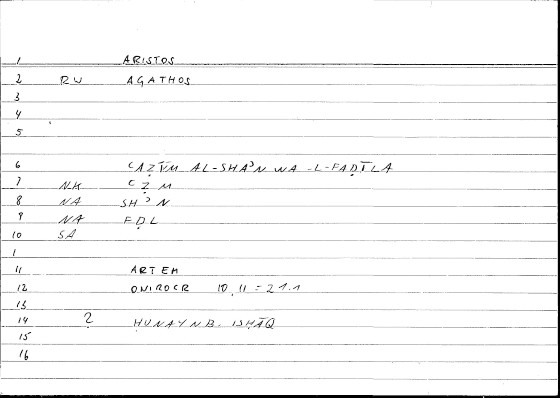 1 ARISTOS
2 RW AGATHOS
3
4
5
6 ʿAẒĪM AL-SHAʾN WA-L-FAḌĪLA
7 NK ʿẒM
8 NA SHʾN
9 NA FḌL
10 SA
1
11 ARTEM
12 ONIROCR 10,11 = 21.1
13
14 2 ḤUNAYN B. ISḤĀQ
15
16